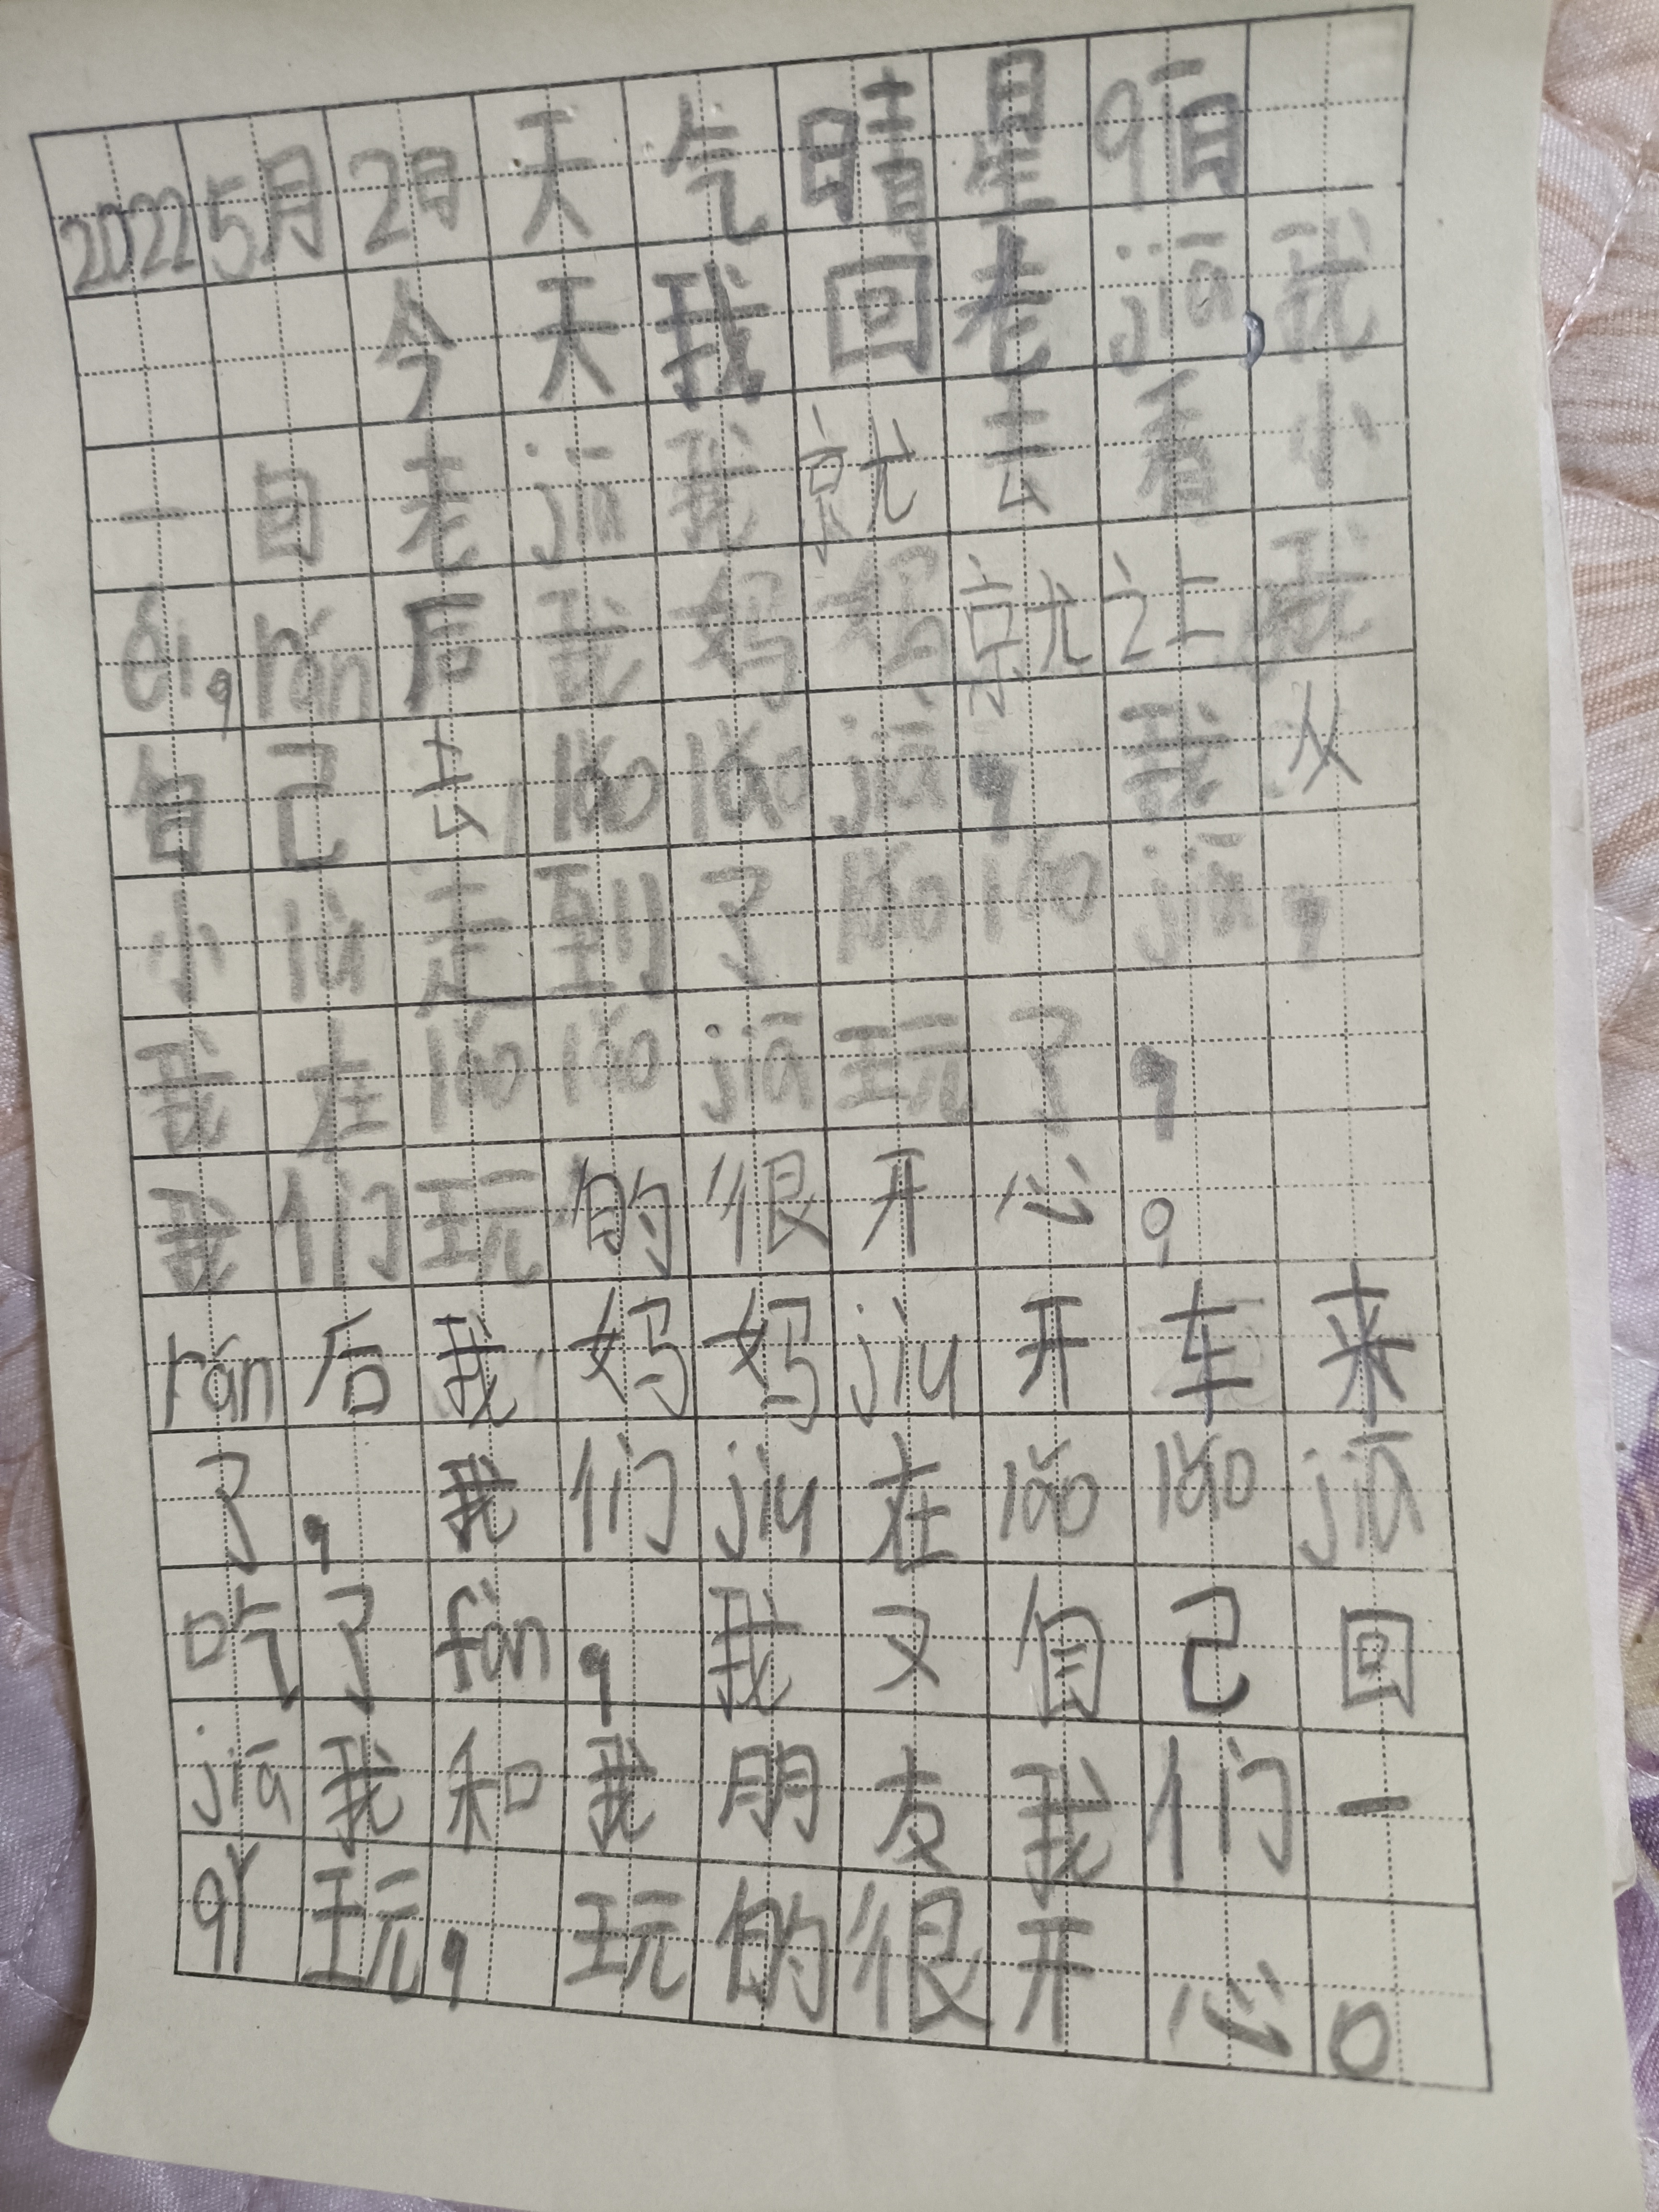 2022 5月2日 天气晴 星qī日
今天我回老jiā我
一自老jiā我就去看小
éi,rán后我妈妈就让我
自己去lǎolǎojiā,我从
小lù走到了lǎolǎojiā,
我在lǎolǎojiā玩了,
我们玩的很开心。
rán后我妈妈jiu开车来
了,我们jiu在lǎolǎojiā
吃了fàn,我又自己回
jiā我和我朋友我们一
qǐ玩,玩的很开心。